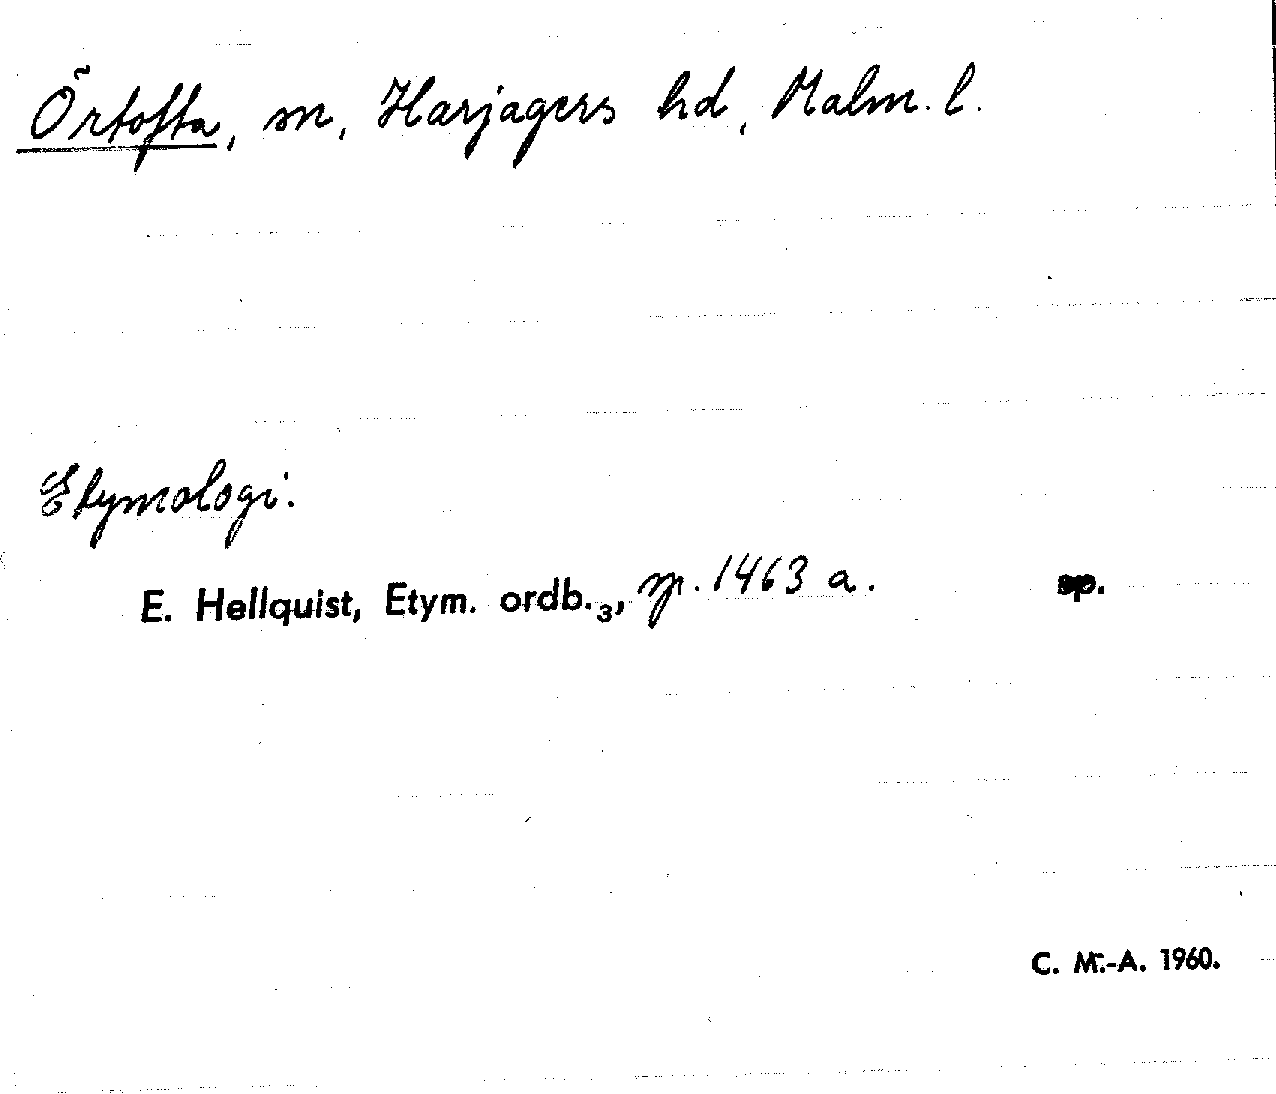 Örtofta, sn, Harjagers hd, Malm. l.
Etymologi.
E. Hellquist, Etym. ordb.₃, sp. 1463 a. sp.
C. M.-A. 1960.